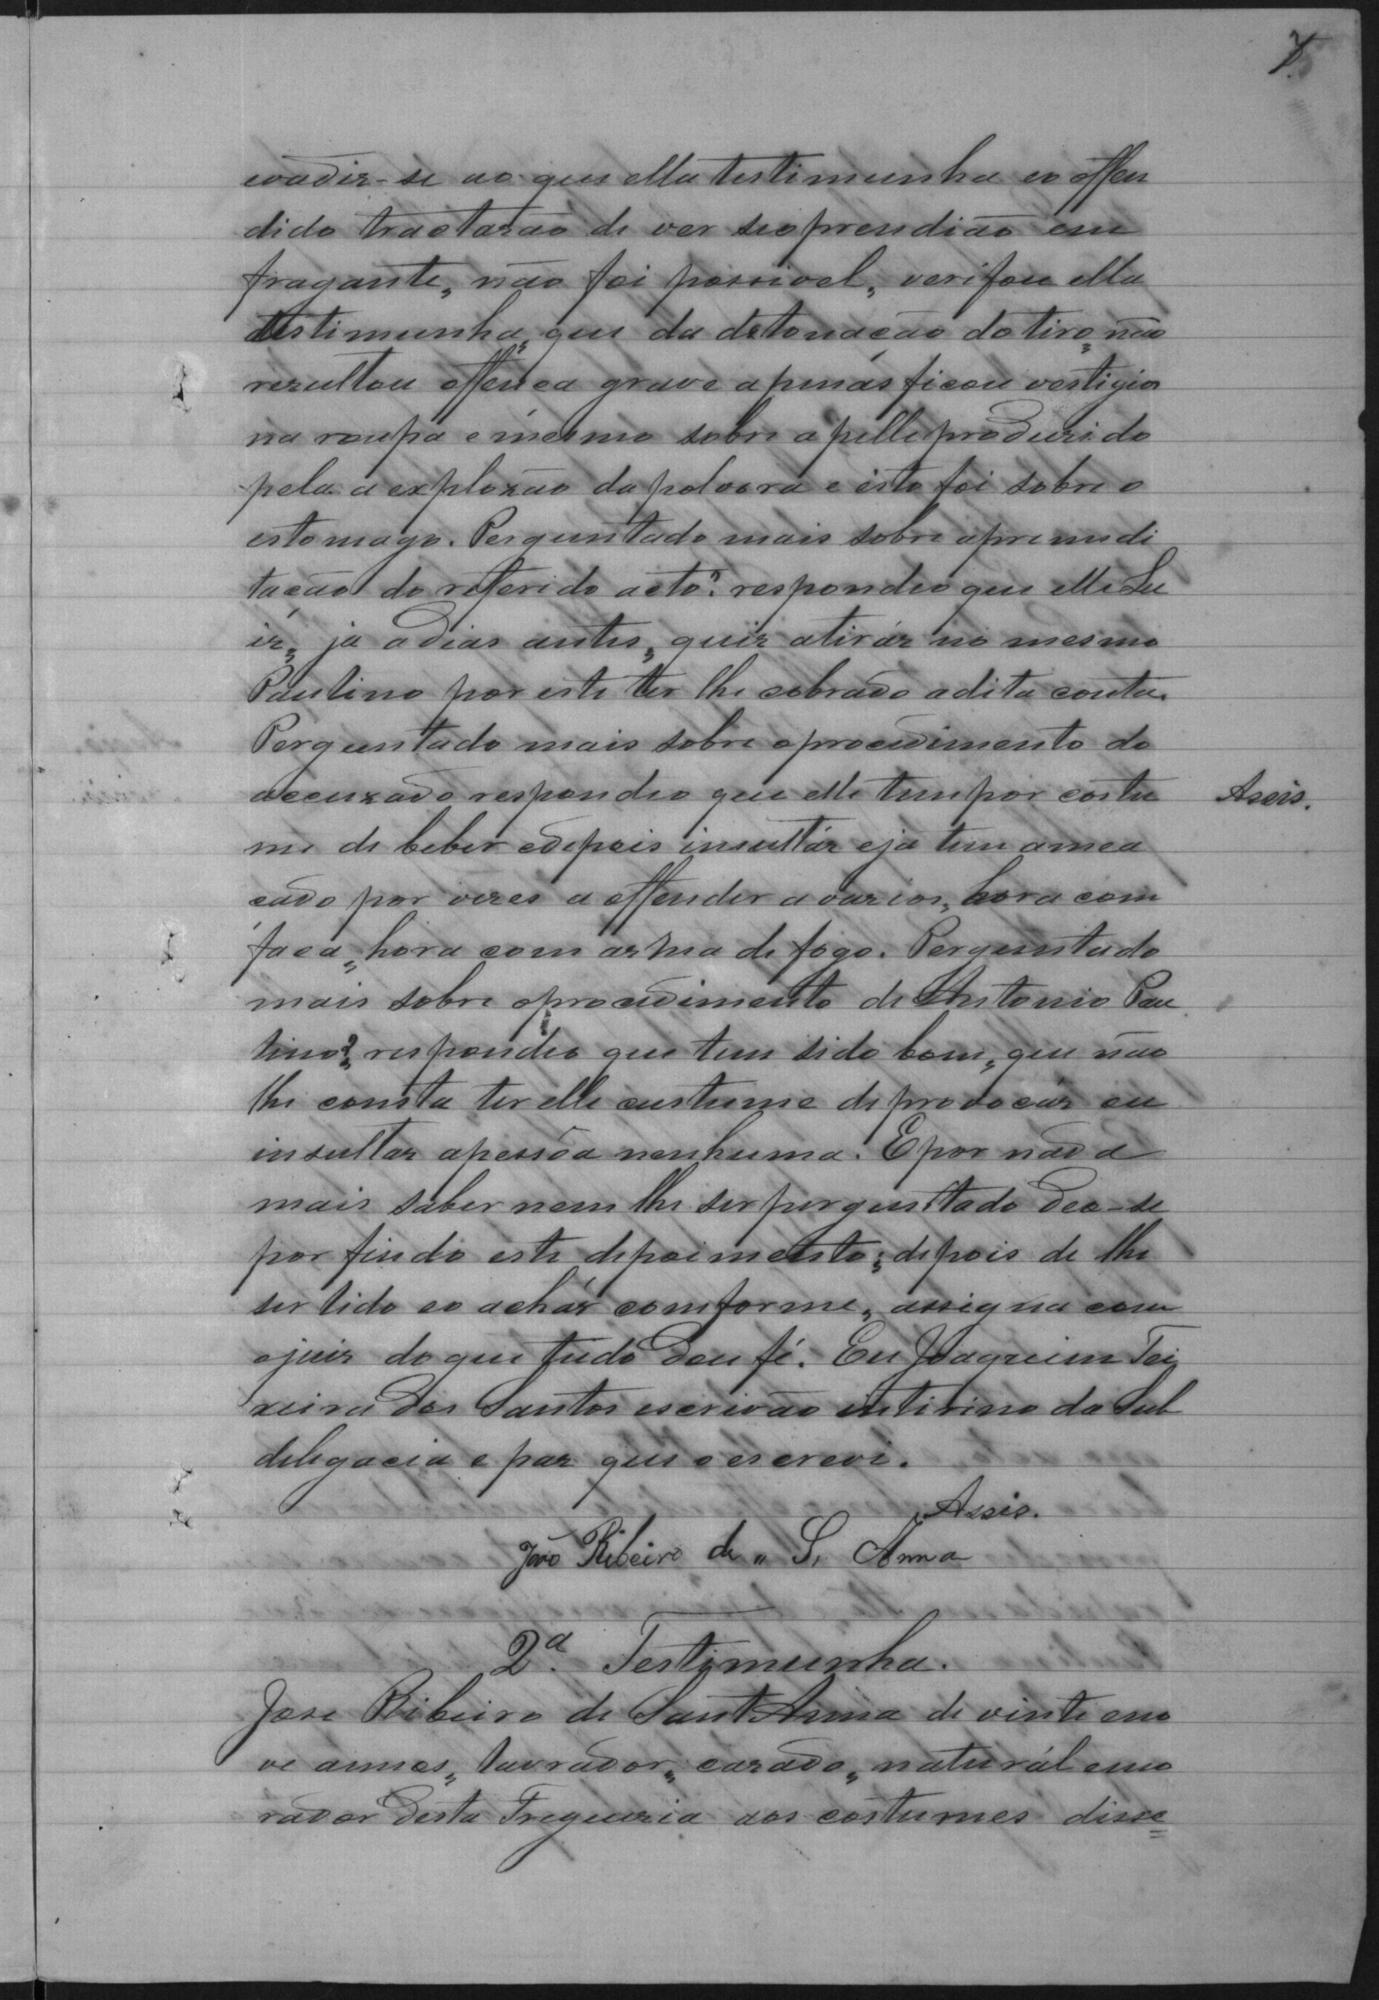 7
evadir-se ao que ella testimunha eo offen
dido tractarão de ver seoprendião em
fragante, não foi possivel, verifou ella
testimunha, que da detonação do tiro, não
rezultou offença grave apenas ficou vestigios
na roupa e mesmo sobre apelle produzido
pela a explozão da polvora e isto foi sobre o
estomago. Perguntado mais sobre apremidi
tação do referido acto? respondeo que elle Lu
iz, ja a dias antes, quiz atirár no mesmo
Paulino por este ter lhe cobrado adita conta.
Perguntado mais sobre oprocedimento do
accuzado respondeo que elle tem por costu
me de beber edepois insultár eja tem amea
çado por vezes a offender a varios, hora com
faca, hora com arma de fogo. Perguntado
mais sobre oprocedimento de Antonio Pau
lino? respondeo que tem sido bom, que não
lhe consta ter elle custume de provocár eu
insultar apessôa nenhuma. E por nada
mais saber nem lhe ser perguntado deo-se
por findo este depoimento; depois de lhe
ser lido eo achár comforme, assigna com
ojuiz do que tudo dou fé. Eu Joaquim Tei
xeira dos Santos escrivão intirino da Sub
delegacia e paz que o escrevi.
Assis.
Assis.
João Ribeiro de S. Anna
2ª. Testimunha.
Jose Ribeiro de Sant Anna de vinte eno
ve annos, lavrador, cazado, naturál emo
rador desta Freguezia aos costumes disse